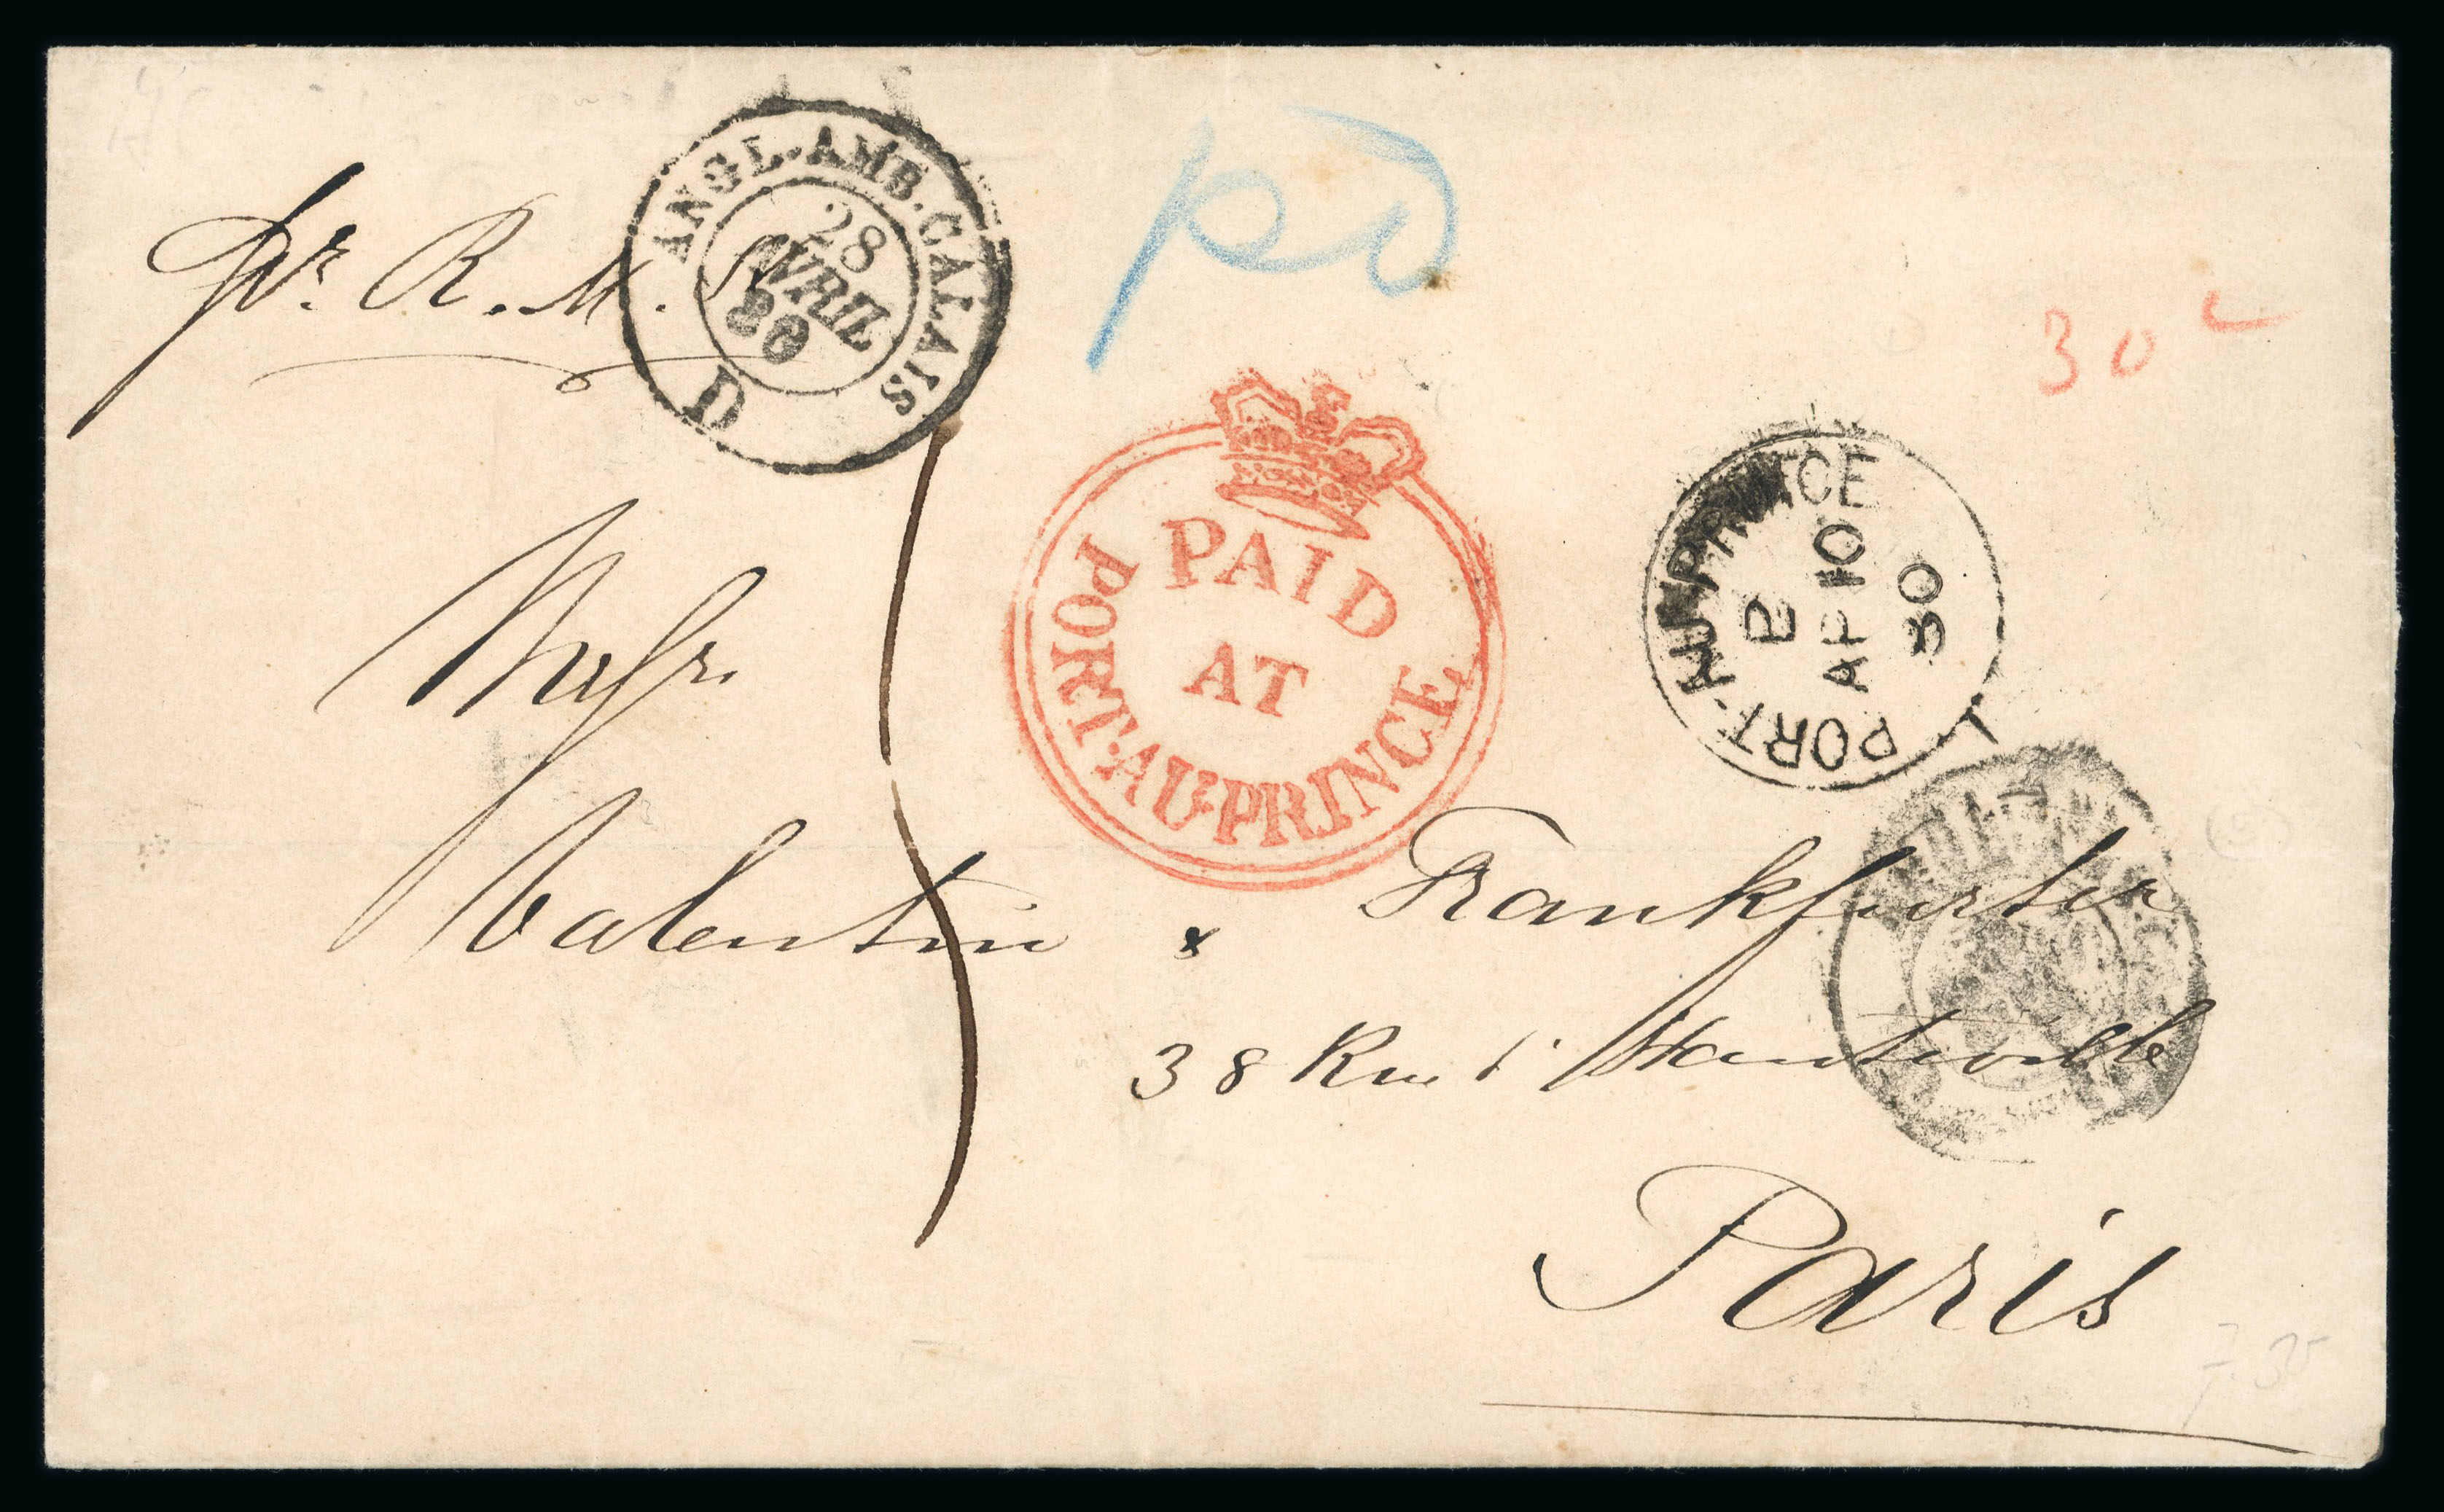 pr. R. M. S
ANGL. AMB. CALAIS
28
AVRIL
80
D
pd
30 c
PAID
AT
PORT-AU-PRINCE
PORT-AU-PRINCE
AP 10
80
Messrs.
Valentin & Frankfurter
38 Rue d'Hauteville
Paris